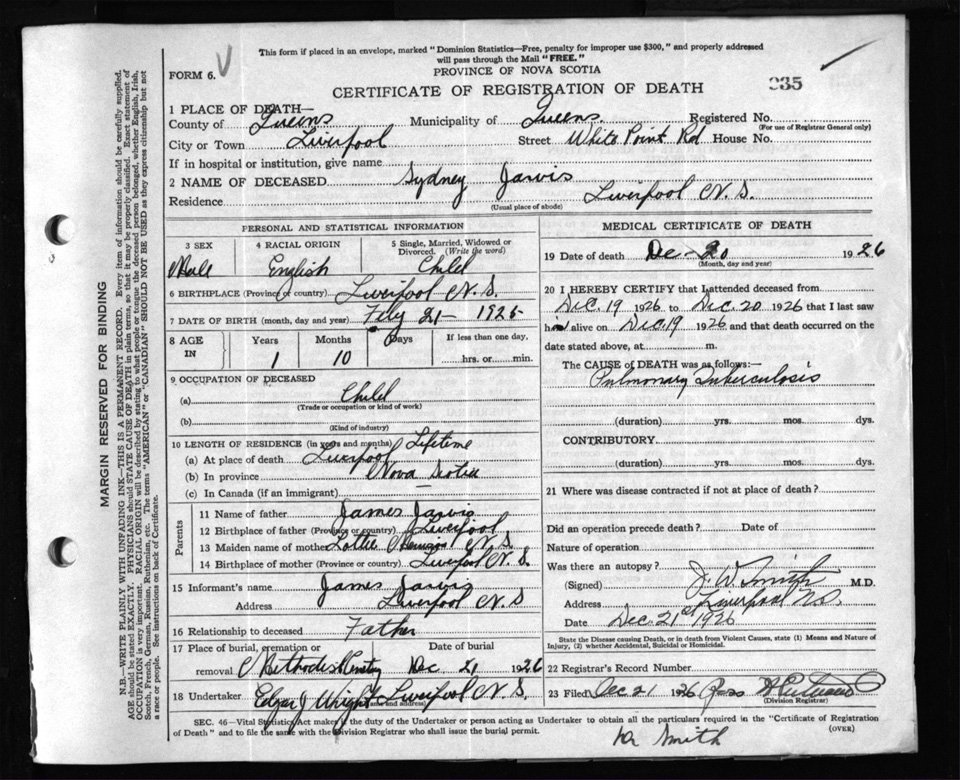 This form if placed in an envelope, marked "Dominion Statistics—Free, penalty for improper use $300," and properly addressed
will pass through the Mail "FREE."
FORM 6.
PROVINCE OF NOVA SCOTIA
CERTIFICATE OF REGISTRATION OF DEATH
935
1 PLACE OF DEATH—
County of Queens Municipality of Queens. Registered No.
(For use of Registrar General only)
City or Town Liverpool Street White Point Rd House No.
If in hospital or institution, give name
2 NAME OF DECEASED Sydney Jarvis
Residence Liverpool N.S.
(Usual place of abode)
PERSONAL AND STATISTICAL INFORMATION
3 SEX 4 RACIAL ORIGIN 5 Single, Married, Widowed or Divorced. (Write the word)
Male English Child
6 BIRTHPLACE (Province or country) Liverpool N.S.
7 DATE OF BIRTH (month, day and year) 21— 1925
8 AGE IN Years Months Days If less than one day,
1 10 hrs. or min.
9 OCCUPATION OF DECEASED
(a) Child
(Trade or occupation or kind of work)
(b)
(Kind of industry)
10 LENGTH OF RESIDENCE (in years and months) Lifetime
(a) At place of death Liverpool
(b) In province Nova Scotia
(c) In Canada (if an immigrant)
Parents
11 Name of father James Jarvis
12 Birthplace of father (Province or country) Liverpool
13 Maiden name of mother Lottie N.S.
14 Birthplace of mother (Province or country) Liverpool N.S.
15 Informant's name James Jarvis
Address Liverpool N.S
16 Relationship to deceased Father
17 Place of burial, cremation or removal Date of burial
Methodist Dec 21 1926
18 Undertaker Edgar J Wright Liverpool N.S.
(Name and address)
MEDICAL CERTIFICATE OF DEATH
19 Date of death Dec 20 1926
(Month, day and year)
20 I HEREBY CERTIFY that I attended deceased from
Dec. 19 1926 to Dec. 20 1926 that I last saw
him alive on Dec. 19 1926 and that death occurred on the
date stated above, at m.
The CAUSE of DEATH was as follows:—
Pulmonary Tuberculosis
(duration) yrs. mos. dys.
CONTRIBUTORY.
(duration) yrs. mos. dys.
21 Where was disease contracted if not at place of death?
Did an operation precede death? Date of
Nature of operation
Was there an autopsy?
(Signed) J. W. Smith M.D.
Address Liverpool N.S.
Date Dec. 21st 1926
State the Disease causing Death, or in death from Violent Causes, state (1) Means and Nature of
Injury, (2) whether Accidental, Suicidal or Homicidal.
22 Registrar's Record Number
23 Filed Dec 21 1926
(Division Registrar)
SEC. 46—Vital Statistics Act makes it the duty of the Undertaker or person acting as Undertaker to obtain all the particulars required in the "Certificate of Registration
of Death" and to file the same with the Division Registrar who shall issue the burial permit.
(OVER)
Dr Smith
MARGIN RESERVED FOR BINDING
N.B.—WRITE PLAINLY WITH UNFADING INK—THIS IS A PERMANENT RECORD. Every item of information should be carefully supplied.
AGE should be stated EXACTLY. PHYSICIANS should STATE CAUSE OF DEATH in plain terms, so that it may be properly classified. Exact statement of
OCCUPATION is very important. RACIAL ORIGIN will be described by stating to what people or tongue the deceased person belonged, whether English, Irish,
Scotch, French, German, Russian, Ruthenian, etc. The terms "AMERICAN" or "CANADIAN" SHOULD NOT BE USED as they express citizenship but not
a race or people. See instructions on back of Certificate.